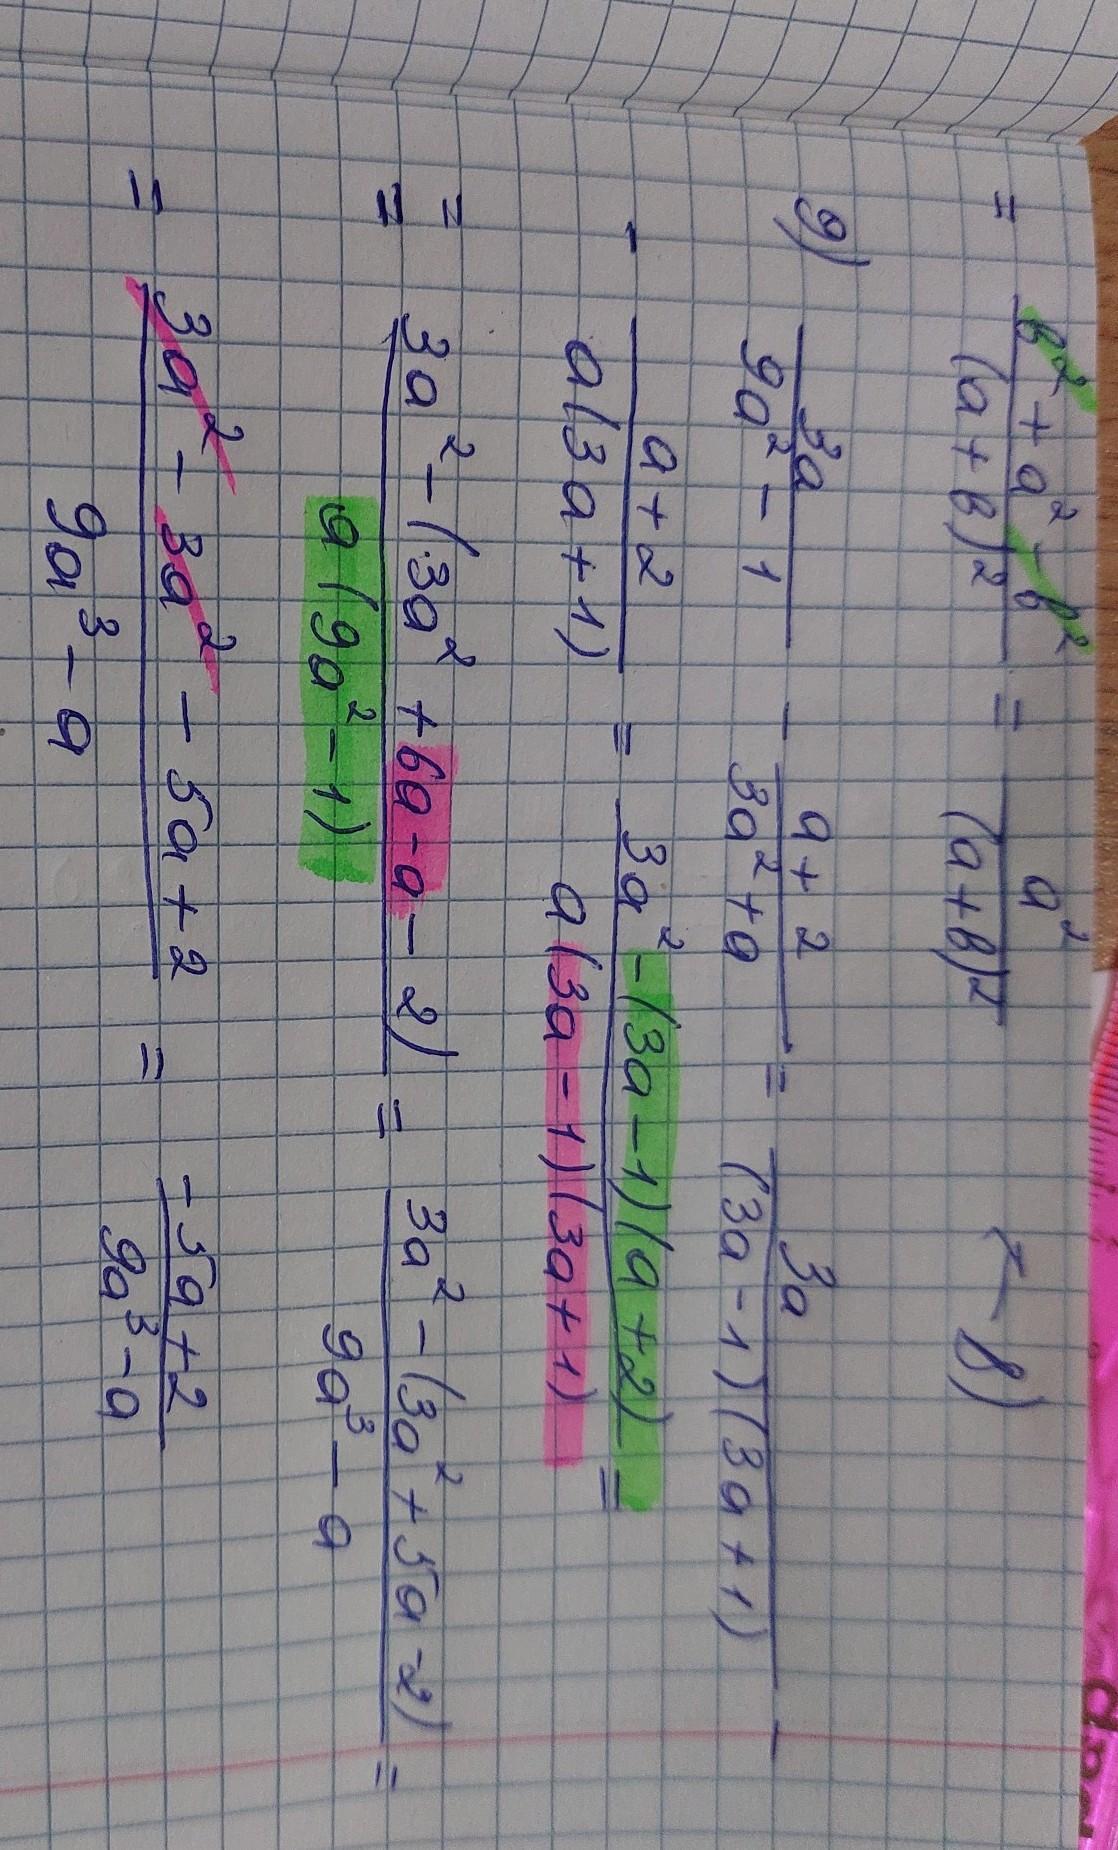 = (b² + a² - b²)/(a + b)² = a²/(a + b)² ← b)
g) 3a/(9a² - 1) - (a + 2)/(3a² + a) = 3a/((3a - 1)(3a + 1)) -
- (a + 2)/(a(3a + 1)) = (3a² - (3a - 1)(a + 2))/(a(3a - 1)(3a + 1)) =
=
= (3a² - (3a² + 6a - a - 2))/(a(9a² - 1)) = (3a² - (3a² + 5a - 2))/(9a³ - a) =
= (3a² - 3a² - 5a + 2)/(9a³ - a) = (-5a + 2)/(9a³ - a)